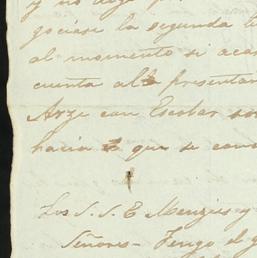 y no
gociase la segunda
al momento si acas
cuenta al presentar
Arze con Escobar so
hacia que se con
Los S. S. E Menzies y
Señores - Tengo el g